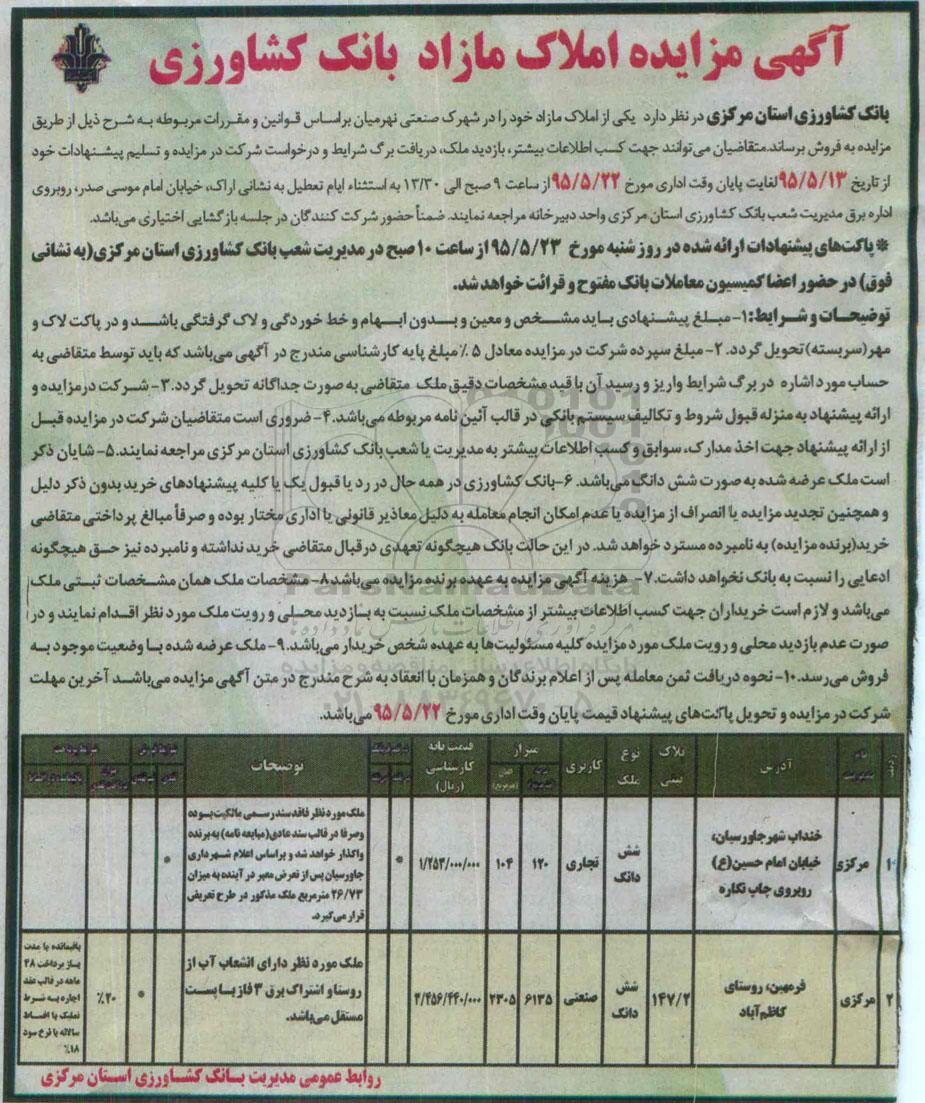 آگهی مزایده املاک مازاد بانک کشاورزی
بانک کشاورزی استان مرکزی در نظر دارد یکی از املاک مازاد خود را در شهرک صنعتی نهرمیان براساس قوانین و مقررات مربوطه به شرح ذیل از طریق
مزایده به فروش برساند.متقاضیان می‌توانند جهت کسب اطلاعات بیشتر، بازدید ملک، دریافت برگ شرایط و درخواست شرکت در مزایده و تسلیم پیشنهادات خود
از تاریخ ۹۵/۵/۱۳ لغایت پایان وقت اداری مورخ ۹۵/۵/۲۲ از ساعت ۹ صبح الی ۱۳/۳۰ به استثناء ایام تعطیل به نشانی اراک، خیابان امام موسی صدر، روبروی
اداره برق مدیریت شعب بانک کشاورزی استان مرکزی واحد دبیرخانه مراجعه نمایند. ضمناً حضور شرکت کنندگان در جلسه بازگشایی اختیاری می‌باشد.
* پاکت‌های پیشنهادات ارائه شده در روز شنبه مورخ ۹۵/۵/۲۳ از ساعت ۱۰ صبح در مدیریت شعب بانک کشاورزی استان مرکزی(به نشانی
فوق) در حضور اعضا کمیسیون معاملات بانک مفتوح و قرائت خواهد شد.
توضیحات و شرایط: ۱- مبلغ پیشنهادی باید مشخص و معین و بدون ابهام و خط خوردگی و لاک گرفتگی باشد و در پاکت لاک و
مهر(سربسته) تحویل گردد. ۲- مبلغ سپرده شرکت در مزایده معادل ۵٪ مبلغ پایه کارشناسی مندرج در آگهی می‌باشد که باید توسط متقاضی به
حساب مورد اشاره در برگ شرایط واریز و رسید آن با قید مشخصات دقیق ملک متقاضی به صورت جداگانه تحویل گردد. ۳- شرکت در مزایده و
ارائه پیشنهاد به منزله قبول شروط و تکالیف سیستم بانکی در قالب آئین نامه مربوطه می‌باشد. ۴- ضروری است متقاضیان شرکت در مزایده قبل
از ارائه پیشنهاد جهت اخذ مدارک، سوابق و کسب اطلاعات بیشتر به مدیریت یا شعب بانک کشاورزی استان مرکزی مراجعه نمایند. ۵- شایان ذکر
است ملک عرضه شده به صورت شش دانگ می‌باشد. ۶- بانک کشاورزی در همه حال در رد یا قبول یک یا کلیه پیشنهادهای خرید بدون ذکر دلیل
و همچنین تجدید مزایده یا انصراف از مزایده یا عدم امکان انجام معامله به دلیل معاذیر قانونی یا اداری مختار بوده و صرفاً مبالغ پرداختی متقاضی
خرید(برنده مزایده) به نامبرده مسترد خواهد شد. در این حالت بانک هیچگونه تعهدی در قبال متقاضی خرید نداشته و نامبرده نیز حق هیچگونه
ادعایی را نسبت به بانک نخواهد داشت. ۷- هزینه آگهی مزایده به عهده برنده مزایده می‌باشد ۸- مشخصات ملک همان مشخصات ثبتی ملک
می‌باشد و لازم است خریداران جهت کسب اطلاعات بیشتر از مشخصات ملک نسبت به بازدید محلی و رویت ملک مورد نظر اقدام نمایند و در
صورت عدم بازدید محلی و رویت ملک مورد مزایده کلیه مسئولیت‌ها به عهده شخص خریدار می‌باشد. ۹- ملک عرضه شده با وضعیت موجود به
فروش می‌رسد. ۱۰- نحوه دریافت ثمن معامله پس از اعلام برندگان و همزمان با انعقاد به شرح مندرج در متن آگهی مزایده می‌باشد آخرین مهلت
شرکت در مزایده و تحویل پاکت‌های پیشنهاد قیمت پایان وقت اداری مورخ ۹۵/۵/۲۲ می‌باشد.
آدرس پلاک ثبتی نوع ملک کاربری متراژ قیمت پایه کارشناسی (ریال) توضیحات
۱ مرکزی خنداب شهر جاورسیان، خیابان امام حسین(ع) روبروی چاپ نگاره شش دانگ تجاری ۱۲۰ ۱۰۴ ۱/۲۵۳/۰۰۰/۰۰۰ *
ملک مورد نظر فاقد سند رسمی مالکیت بوده
و صرفا در قالب سند عادی(مبایعه نامه) به برنده
واگذار خواهد شد و براساس اعلام شهرداری
جاورسیان پس از تعرض معبر در آینده به میزان
۲۶/۷۳ مترمربع ملک مذکور در طرح تعریض
قرار می‌گیرد.
*
۲ مرکزی فرمهین، روستای کاظم‌آباد ۱۴۷/۲ شش دانگ صنعتی ۶۱۳۵ ۲۳۰۵ ۲/۴۵۶/۴۴۰/۰۰۰
ملک مورد نظر دارای انشعاب آب از
روستا و اشتراک برق ۳ فاز با پست
مستقل می‌باشد.
* ۲۰٪
باقیمانده با مدت
باز پرداخت ۴۸
ماهه در قالب عقد
اجاره به شرط
تملیک با اقساط
سالانه با نرخ سود
۱۸٪
روابط عمومی مدیریت بانک کشاورزی استان مرکزی
ParsNamadData
پایگاه اطلاع رسانی مناقصه و مزایده